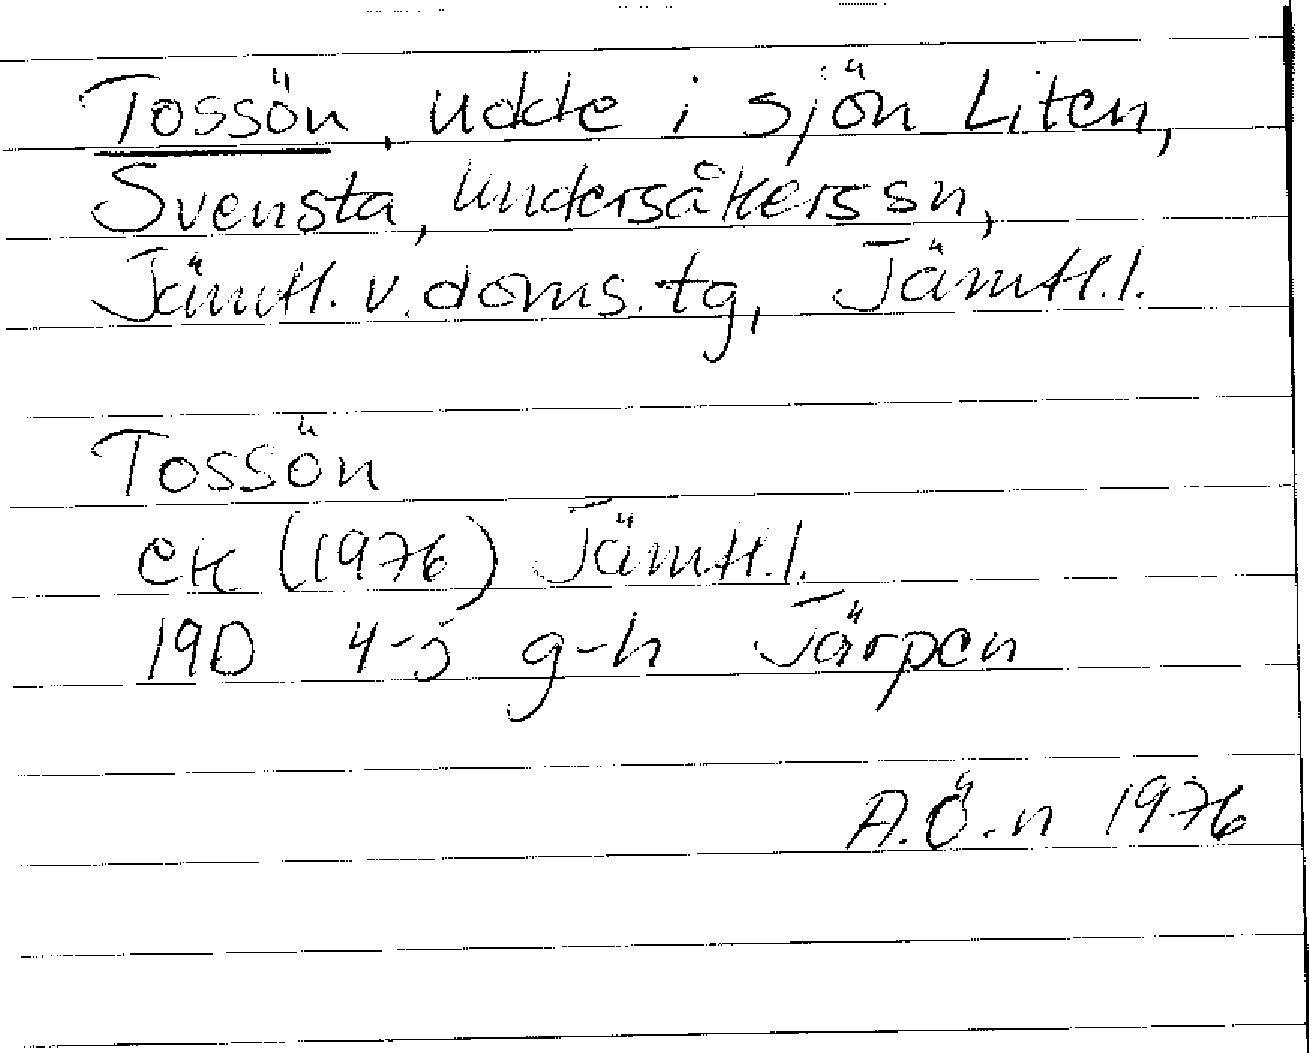 Tossön, udde i sjön Liten,
Svensta, Undersåkers sn,
Jämtl. v. doms. tg, Jämtl. l.
Tossön
EK (1976) Jämtl. l.
19D 4-5 g-h Järpen
A.Ö.n 1976